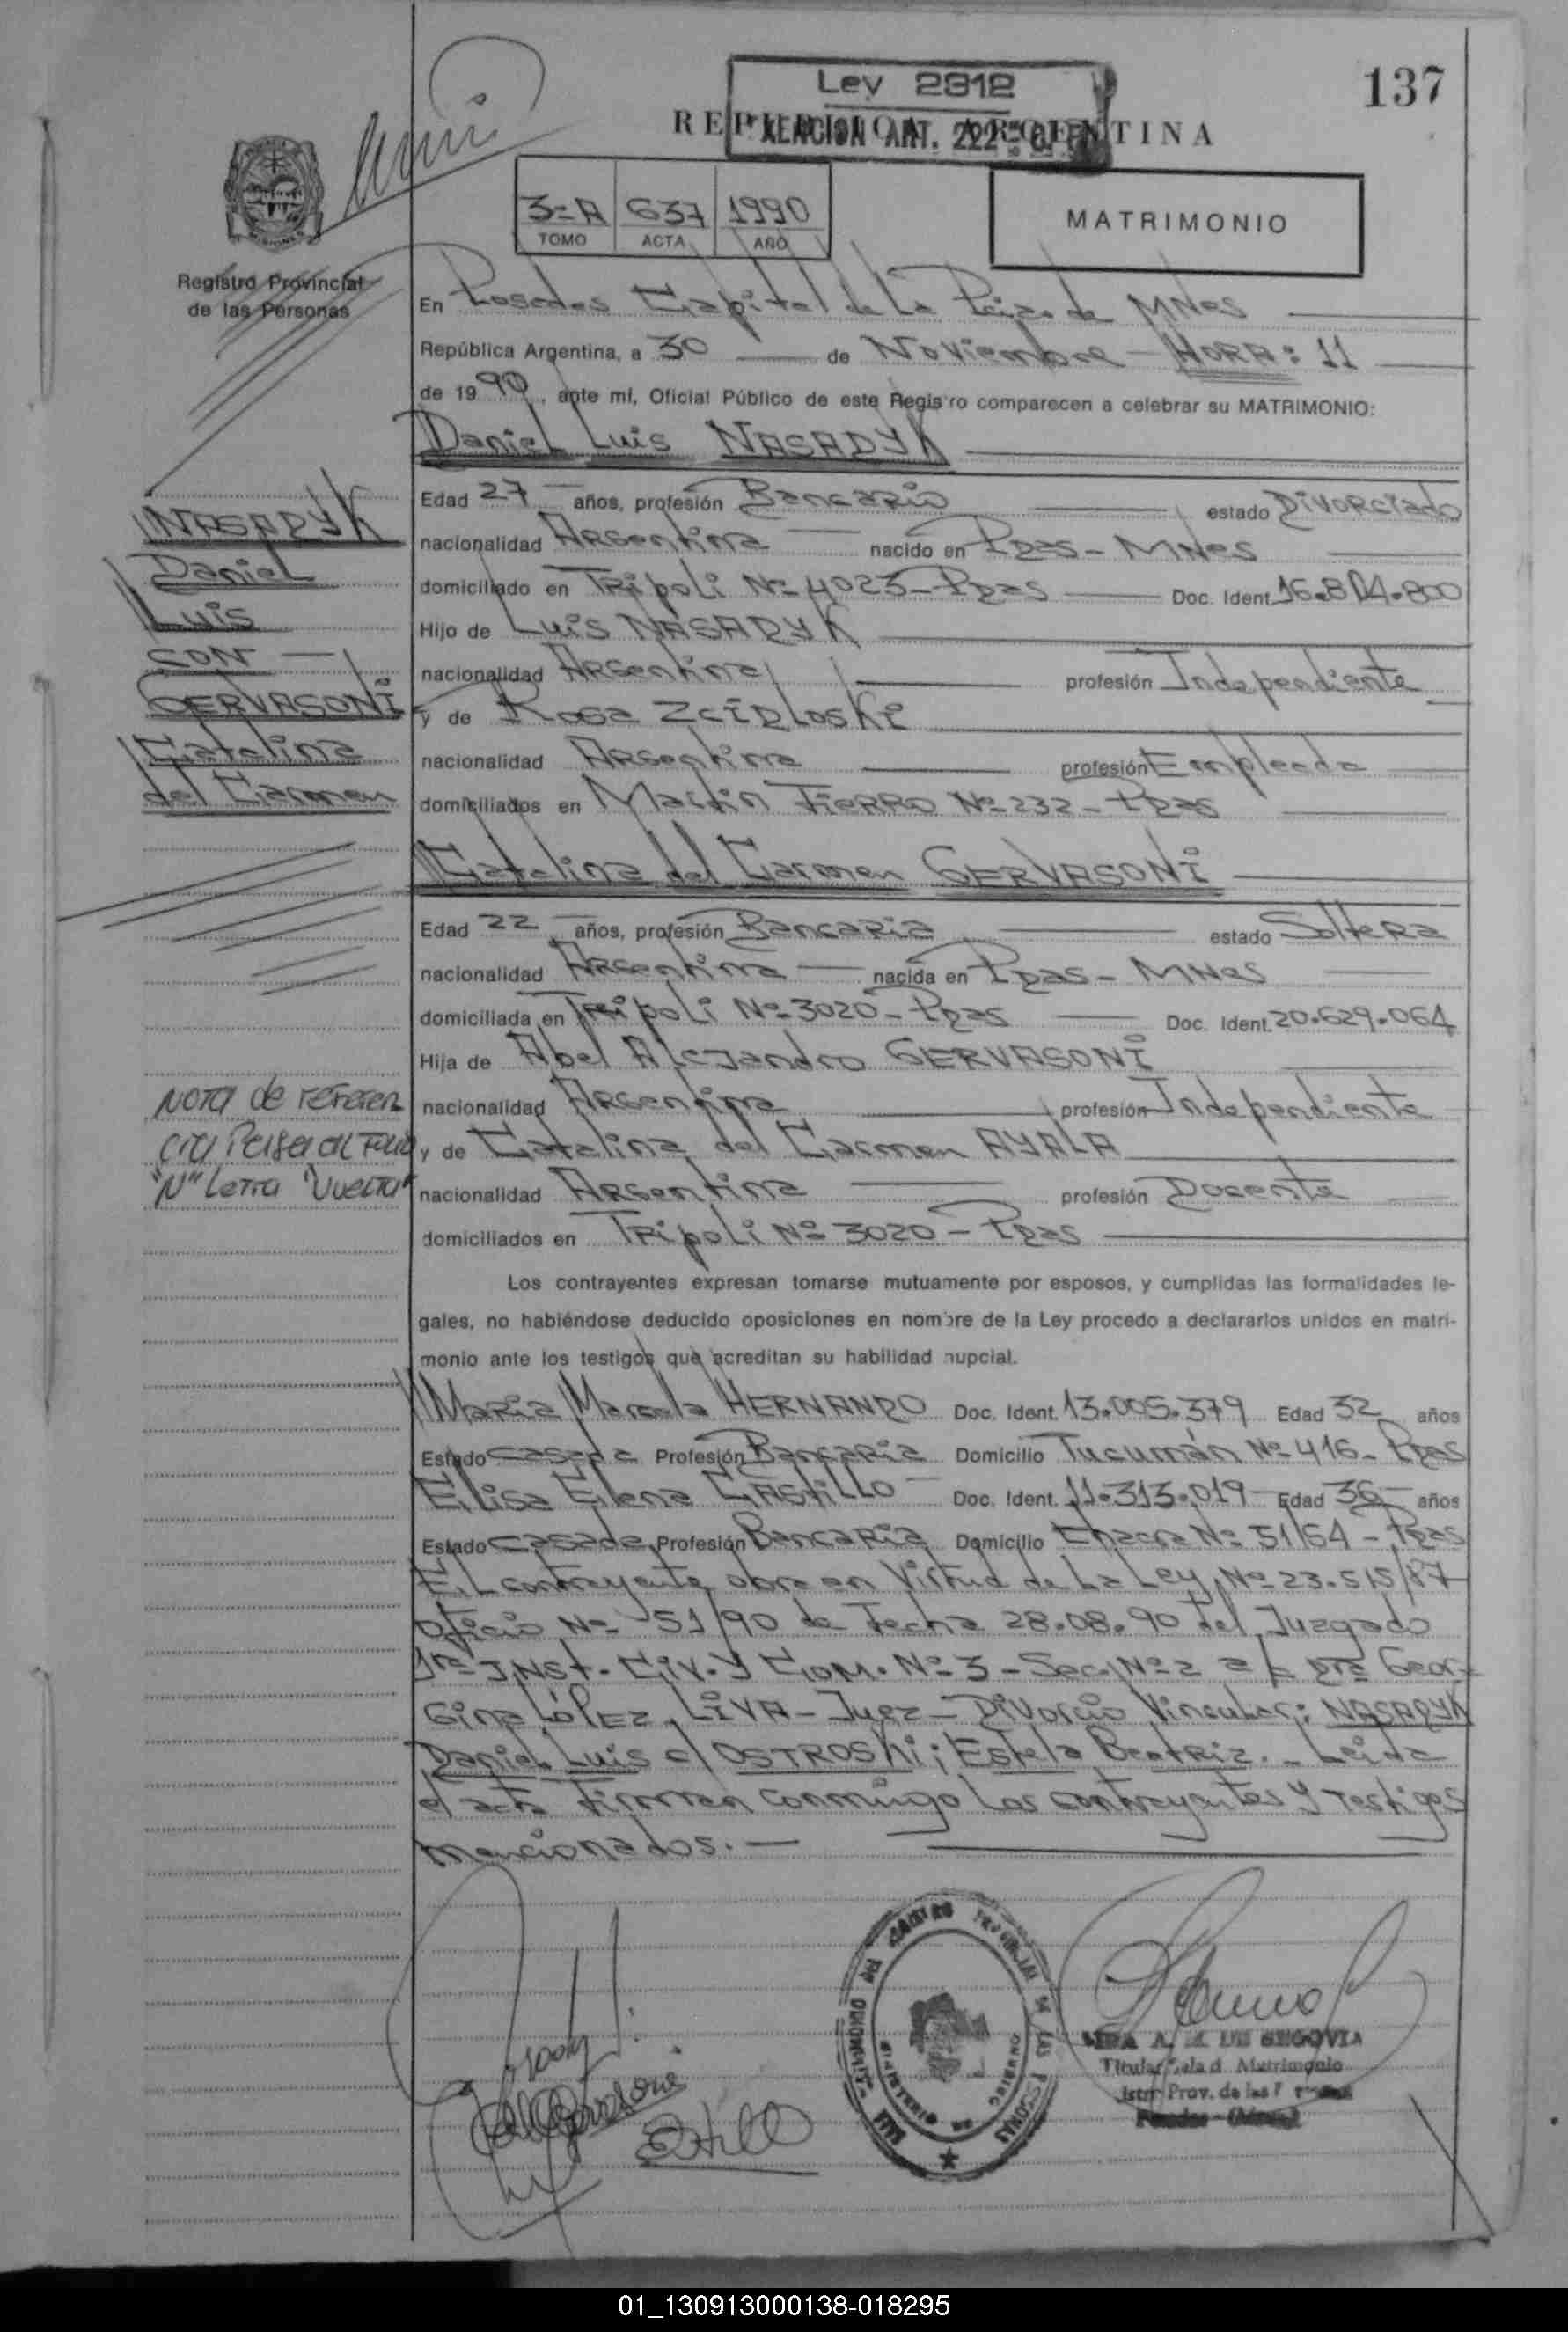 137
Ley 2312
REPUBLICA ARGENTINA
EXENCION ART. 222
3=A 637 1990
TOMO ACTA AÑO
MATRIMONIO
MISIONES
Registro Provincial
de las Personas
En Posadas Capital de La Pcia. de MNes
República Argentina, a 30 de Noviembre - HORA: 11
de 1990, ante mí, Oficial Público de este Registro comparecen a celebrar su MATRIMONIO:
Daniel Luis NASADYK
Edad 27 años, profesión Bancario estado Divorciado
nacionalidad Argentina nacido en Pdas - MNes
domiciliado en Tripoli Nº 4023 - Pdas Doc. Ident. 16.8 .800
Hijo de Luis NASADYK
nacionalidad Argentina profesión Independiente
y de Rosa Zcidloski
nacionalidad Argentina profesión Empleada
domiciliados en Martin Fierro Nº 232 - Pdas
Catalina del Carmen GERVASONI
Edad 22 años, profesión Bancaria estado Soltera
nacionalidad Argentina nacida en Pdas - MNes
domiciliada en Tripoli Nº 3020 - Pdas Doc. Ident. 20.629.064
Hija de Abel Alejandro GERVASONI
nacionalidad Argentina profesión Independiente
y de Catalina del Carmen AYALA
nacionalidad Argentina profesión Docente
domiciliados en Tripoli Nº 3020 - Pdas
Los contrayentes expresan tomarse mutuamente por esposos, y cumplidas las formalidades le-
gales, no habiéndose deducido oposiciones en nombre de la Ley procedo a declararlos unidos en matri-
monio ante los testigos que acreditan su habilidad nupcial.
Maria Marcela HERNANDO Doc. Ident. 13.005.379 Edad 32 años
Estado casada Profesión Bancaria Domicilio Tucumán Nº 416 - Pdas
Elisa Elena CASTILLO Doc. Ident. 11.313.019 Edad 36 años
Estado casada Profesión Bancaria Domicilio Chacra Nº 51/64 - Pdas
El contrayente obra en Virtud de La Ley Nº 23.515/87
oficio Nº 51/90 de Fecha 28.08.90 del Juzgado
1ra INST. CIV. Y COM. Nº 3 - Sec. Nº 2 a/c Dra Geor-
Gina LÓPEZ LIVA - Juez - Divorcio Vincular: NASADYK
Daniel Luis c/ OSTROSKI; Estela Beatriz. - Leida
el acta Firman conmigo Los contrayentes y Testigos
mencionados. -
NASADYK
Daniel
Luis
CON -
GERVASONI
Catalina
del Carmen
NOTA de referen
cia Pasa al Folio
"N" Letra "Vuelta"
A. M. DE SEGOVIA
Titular Sala d. Matrimonio
Prov. de las
Posadas - (Mnes.)
01_130913000138-018295